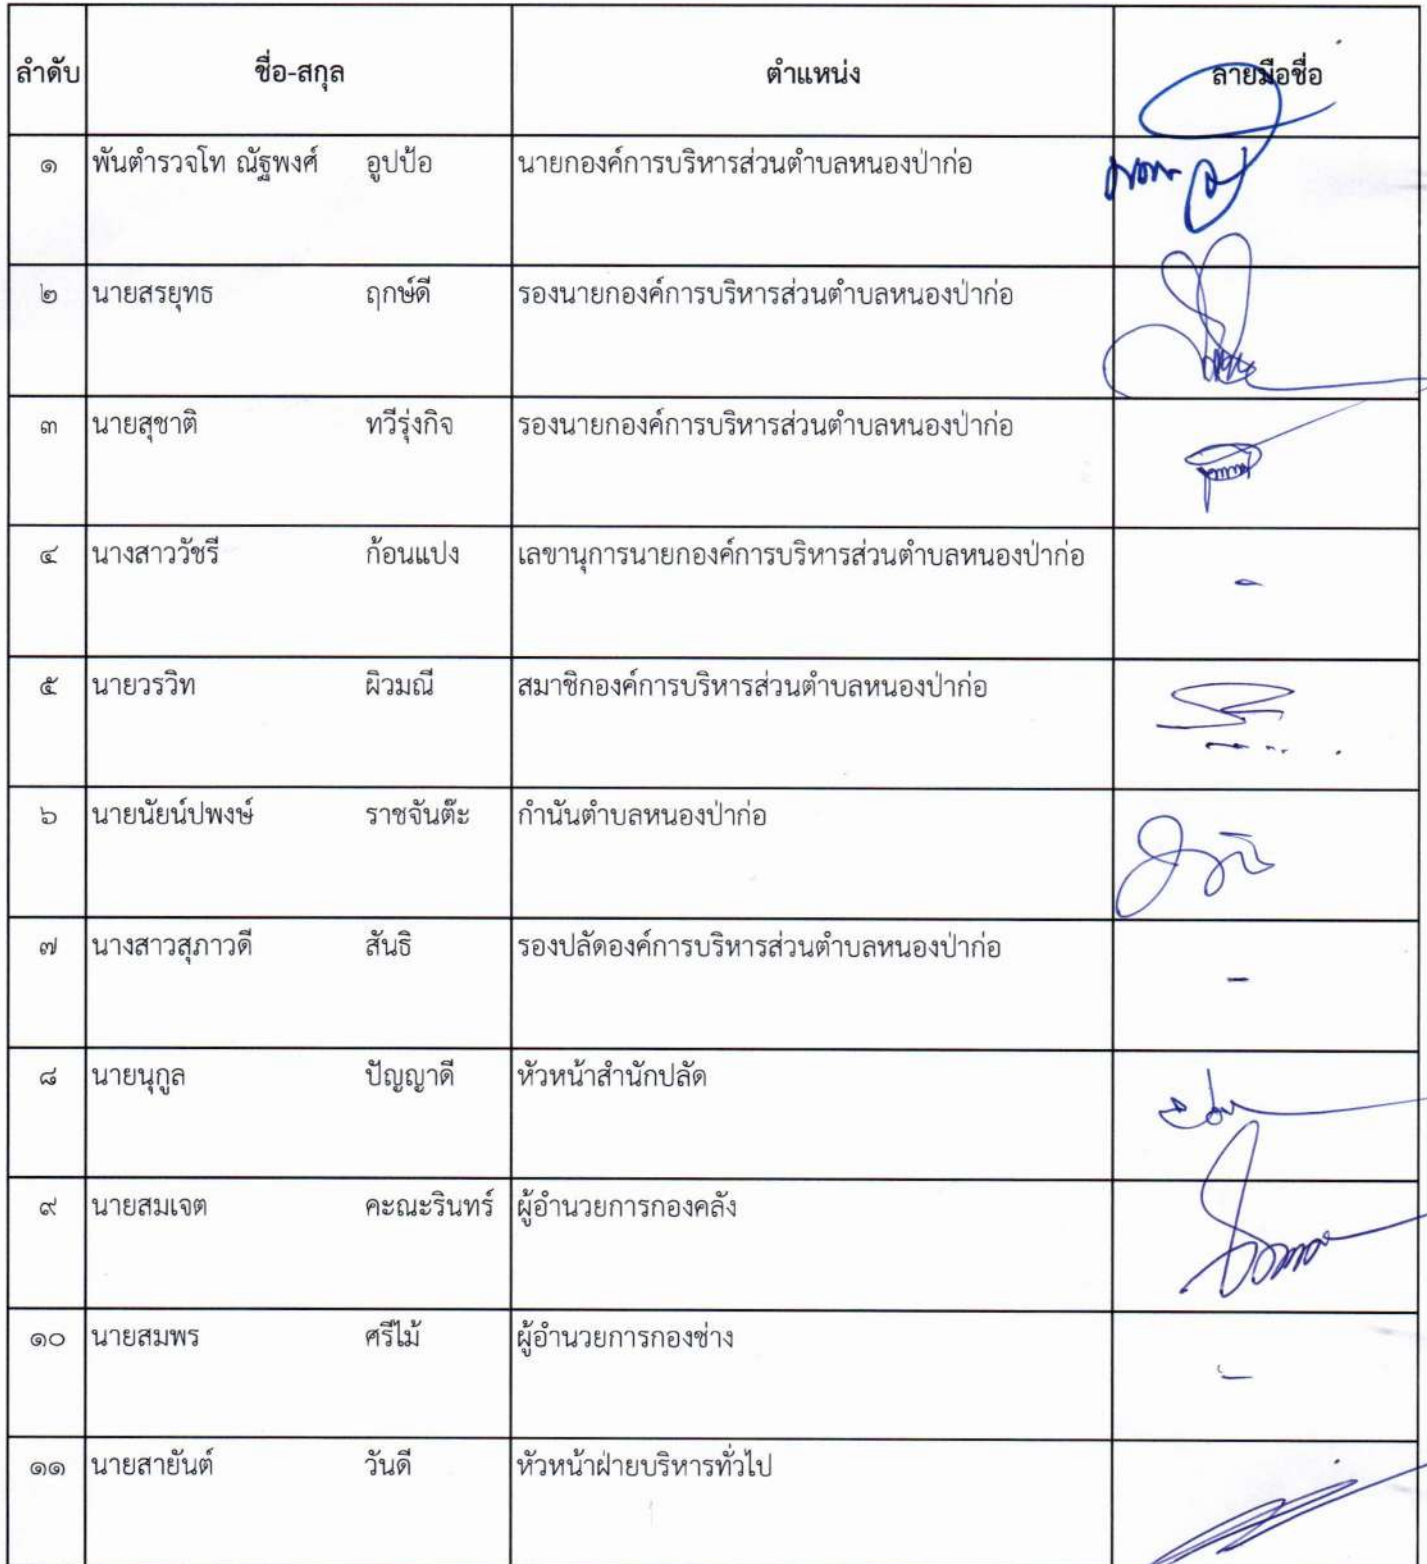 ลำดับ ชื่อ-สกุล ตำแหน่ง ลายมือชื่อ
๑ พันตำรวจโท ณัฐพงศ์ อูปป้อ นายกองค์การบริหารส่วนตำบลหนองป่าก่อ
๒ นายสรยุทธ ฤกษ์ดี รองนายกองค์การบริหารส่วนตำบลหนองป่าก่อ
๓ นายสุชาติ ทวีรุ่งกิจ รองนายกองค์การบริหารส่วนตำบลหนองป่าก่อ
๔ นางสาววัชรี ก้อนแปง เลขานุการนายกองค์การบริหารส่วนตำบลหนองป่าก่อ -
๕ นายวรวิท ผิวมณี สมาชิกองค์การบริหารส่วนตำบลหนองป่าก่อ
๖ นายนัยน์ปพงษ์ ราชจันต๊ะ กำนันตำบลหนองป่าก่อ
๗ นางสาวสุภาวดี สันธิ รองปลัดองค์การบริหารส่วนตำบลหนองป่าก่อ -
๘ นายนุกูล ปัญญาดี หัวหน้าสำนักปลัด
๙ นายสมเจต คะณะรินทร์ ผู้อำนวยการกองคลัง
๑๐ นายสมพร ศรีไม้ ผู้อำนวยการกองช่าง -
๑๑ นายสายันต์ วันดี หัวหน้าฝ่ายบริหารทั่วไป